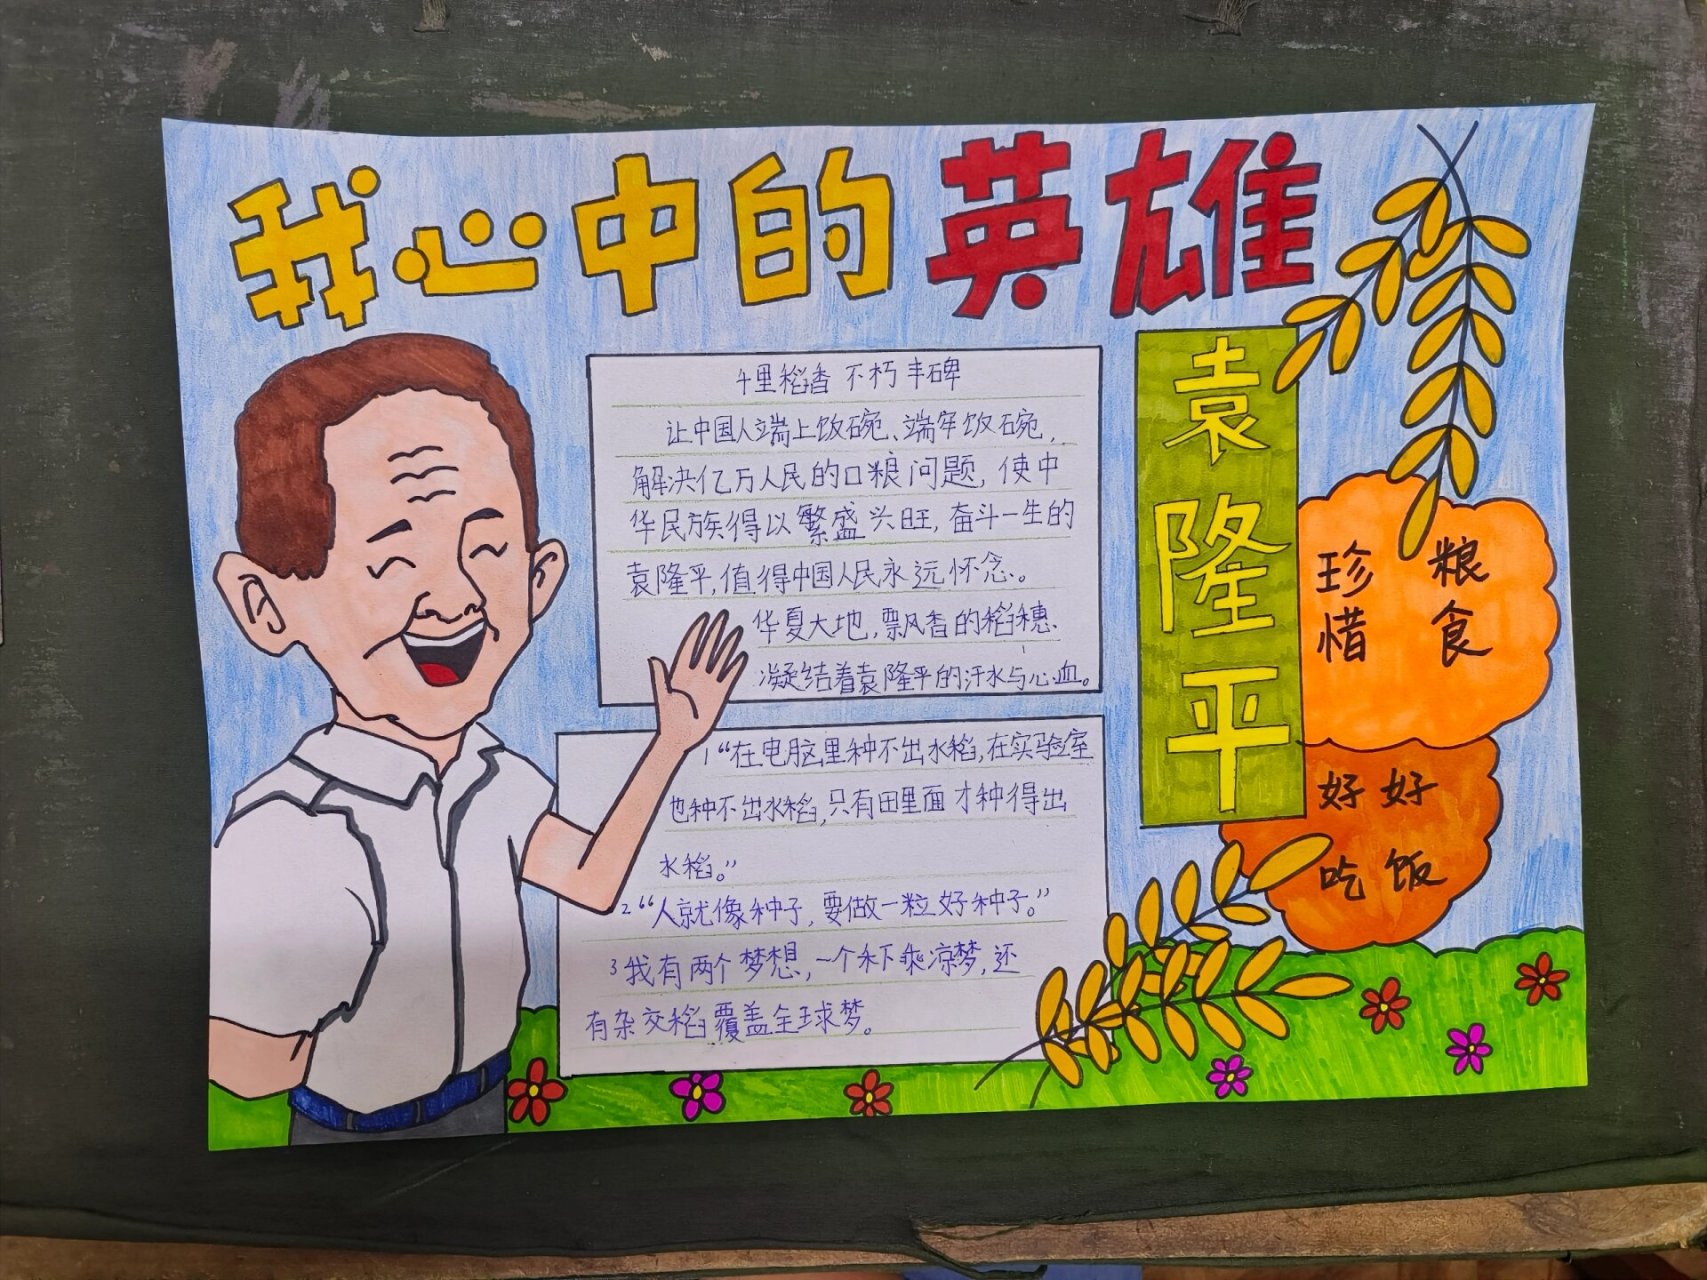 我心中的英雄
千里稻香 不朽丰碑
让中国人端上饭碗、端牢饭碗,
解决亿万人民的口粮问题,使中
华民族得以繁盛兴旺,奋斗一生的
袁隆平,值得中国人民永远怀念。
华夏大地,飘香的稻穗
凝结着袁隆平的汗水与心血。
1“在电脑里种不出水稻,在实验室
也种不出水稻,只有田里面才种得出
水稻。”
2“人就像种子,要做一粒好种子。”
3我有两个梦想,一个禾下乘凉梦,还
有杂交稻覆盖全球梦。
袁隆平
珍惜
粮食
好好
吃饭